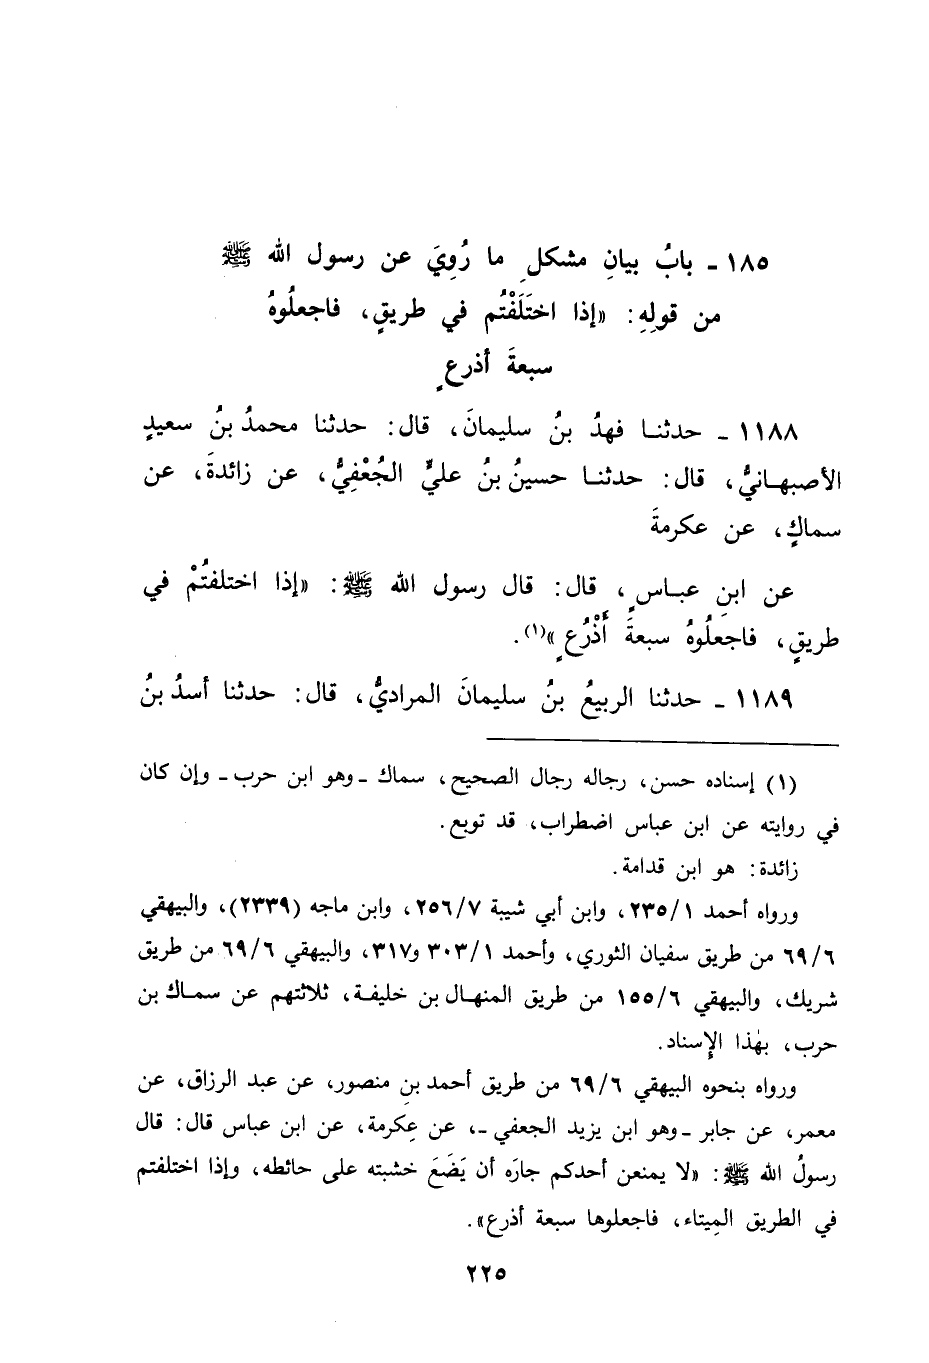 ١٨٥ ـ بابُ بيانِ مشكلِ ما رُوِيَ عن رسول الله ﷺ
من قولِهِ: «إذا اختَلَفْتُم في طريقٍ، فاجعلُوهُ
سبعةَ أذرعٍ
١١٨٨ ـ حدثنا فهدُ بنُ سليمانَ، قال: حدثنا محمدُ بنُ سعيدٍ
الأصبهانيُّ، قال: حدثنا حسينُ بنُ عليٍّ الجُعْفِيُّ، عن زائدةَ، عن
سماكٍ، عن عكرمةَ
عن ابنِ عباسٍ، قال: قال رسول الله ﷺ: «إذا اختلفتُمْ في
طريقٍ، فاجعلُوهُ سبعةَ أَذْرُعٍ»(١).
١١٨٩ ـ حدثنا الربيعُ بنُ سليمانَ المراديُّ، قال: حدثنا أسدُ بنُ
(١) إسناده حسن، رجاله رجال الصحيح، سماك ـ وهو ابن حرب ـ وإن كان
في روايته عن ابن عباس اضطراب، قد توبع.
زائدة: هو ابن قدامة.
ورواه أحمد ٢٣٥/١، وابن أبي شيبة ٢٥٦/٧، وابن ماجه (٢٣٣٩)، والبيهقي
٦٩/٦ من طريق سفيان الثوري، وأحمد ٣٠٣/١ و٣١٧، والبيهقي ٦٩/٦ من طريق
شريك، والبيهقي ١٥٥/٦ من طريق المنهال بن خليفة، ثلاثتهم عن سماك بن
حرب، بهٰذا الإسناد.
ورواه بنحوه البيهقي ٦٩/٦ من طريق أحمد بن منصور، عن عبد الرزاق، عن
معمر، عن جابر ـ وهو ابن يزيد الجعفي ـ، عن عِكرمة، عن ابن عباس قال: قال
رسولُ الله ﷺ: «لا يمنعن أحدكم جارَه أن يَضَعَ خشبته على حائطه، وإذا اختلفتم
في الطريق المِيتاء، فاجعلوها سبعة أذرع».
٢٢٥